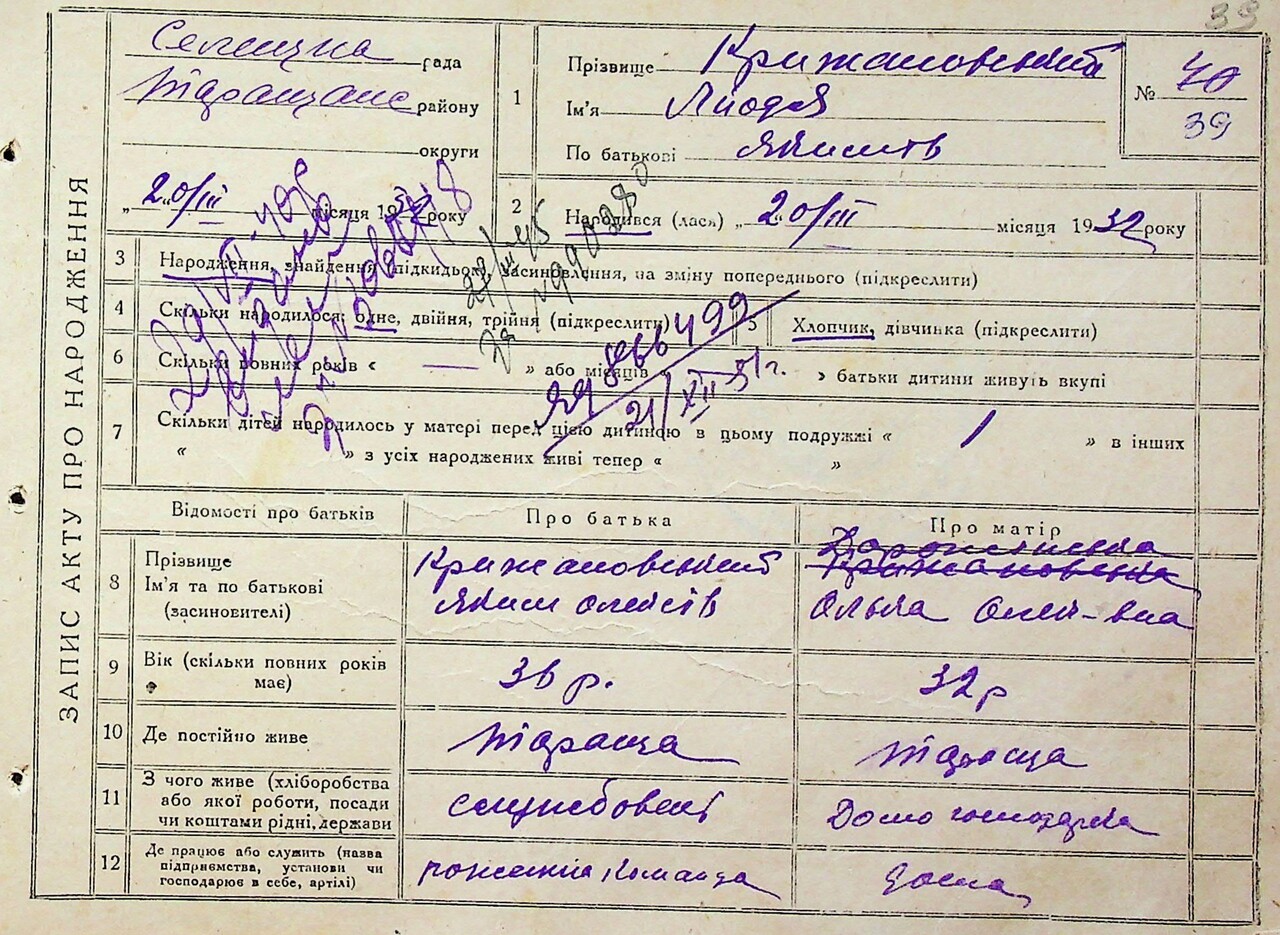 39
ЗАПИС АКТУ ПРО НАРОДЖЕННЯ
рада
району
округи
„20/III місяця 1932 року
1
Прізвище Крижановський
Ім'я
По батькові Якимів
№ 40
39
2 Народився (лась) „20/III місяця 1932 року
3 Народження, знайдення, підкидько, засиновлення, на зміну попереднього (підкреслити)
4 Скільки народилося: одне, двійня, трійня (підкреслити)
5 Хлопчик, дівчинка (підкреслити)
6 Скільки повних років « — » або місяців « » батьки дитини живуть вкупі
866499
21/XII 51г.
7 Скільки дітей народилось у матері перед цією дитиною в цьому подружжі « 1 » в інших
« » з усіх народжених живі тепер « »
Відомості про батьків
Про батька
Про матір
8 Прізвище
Ім'я та по батькові
(засиновителі)
Крижановський
Яким Олексів
Крижановська
Ольга
9 Вік (скільки повних років
має)
36 р.
32 р
10 Де постійно живе
11 З чого живе (хліборобства
або якої роботи, посади
чи коштами рідні, держави
службовець
Домогосподарка
12 Де працює або служить (назва
підприємства, установи чи
господарює в себе, артілі)
команда
дома